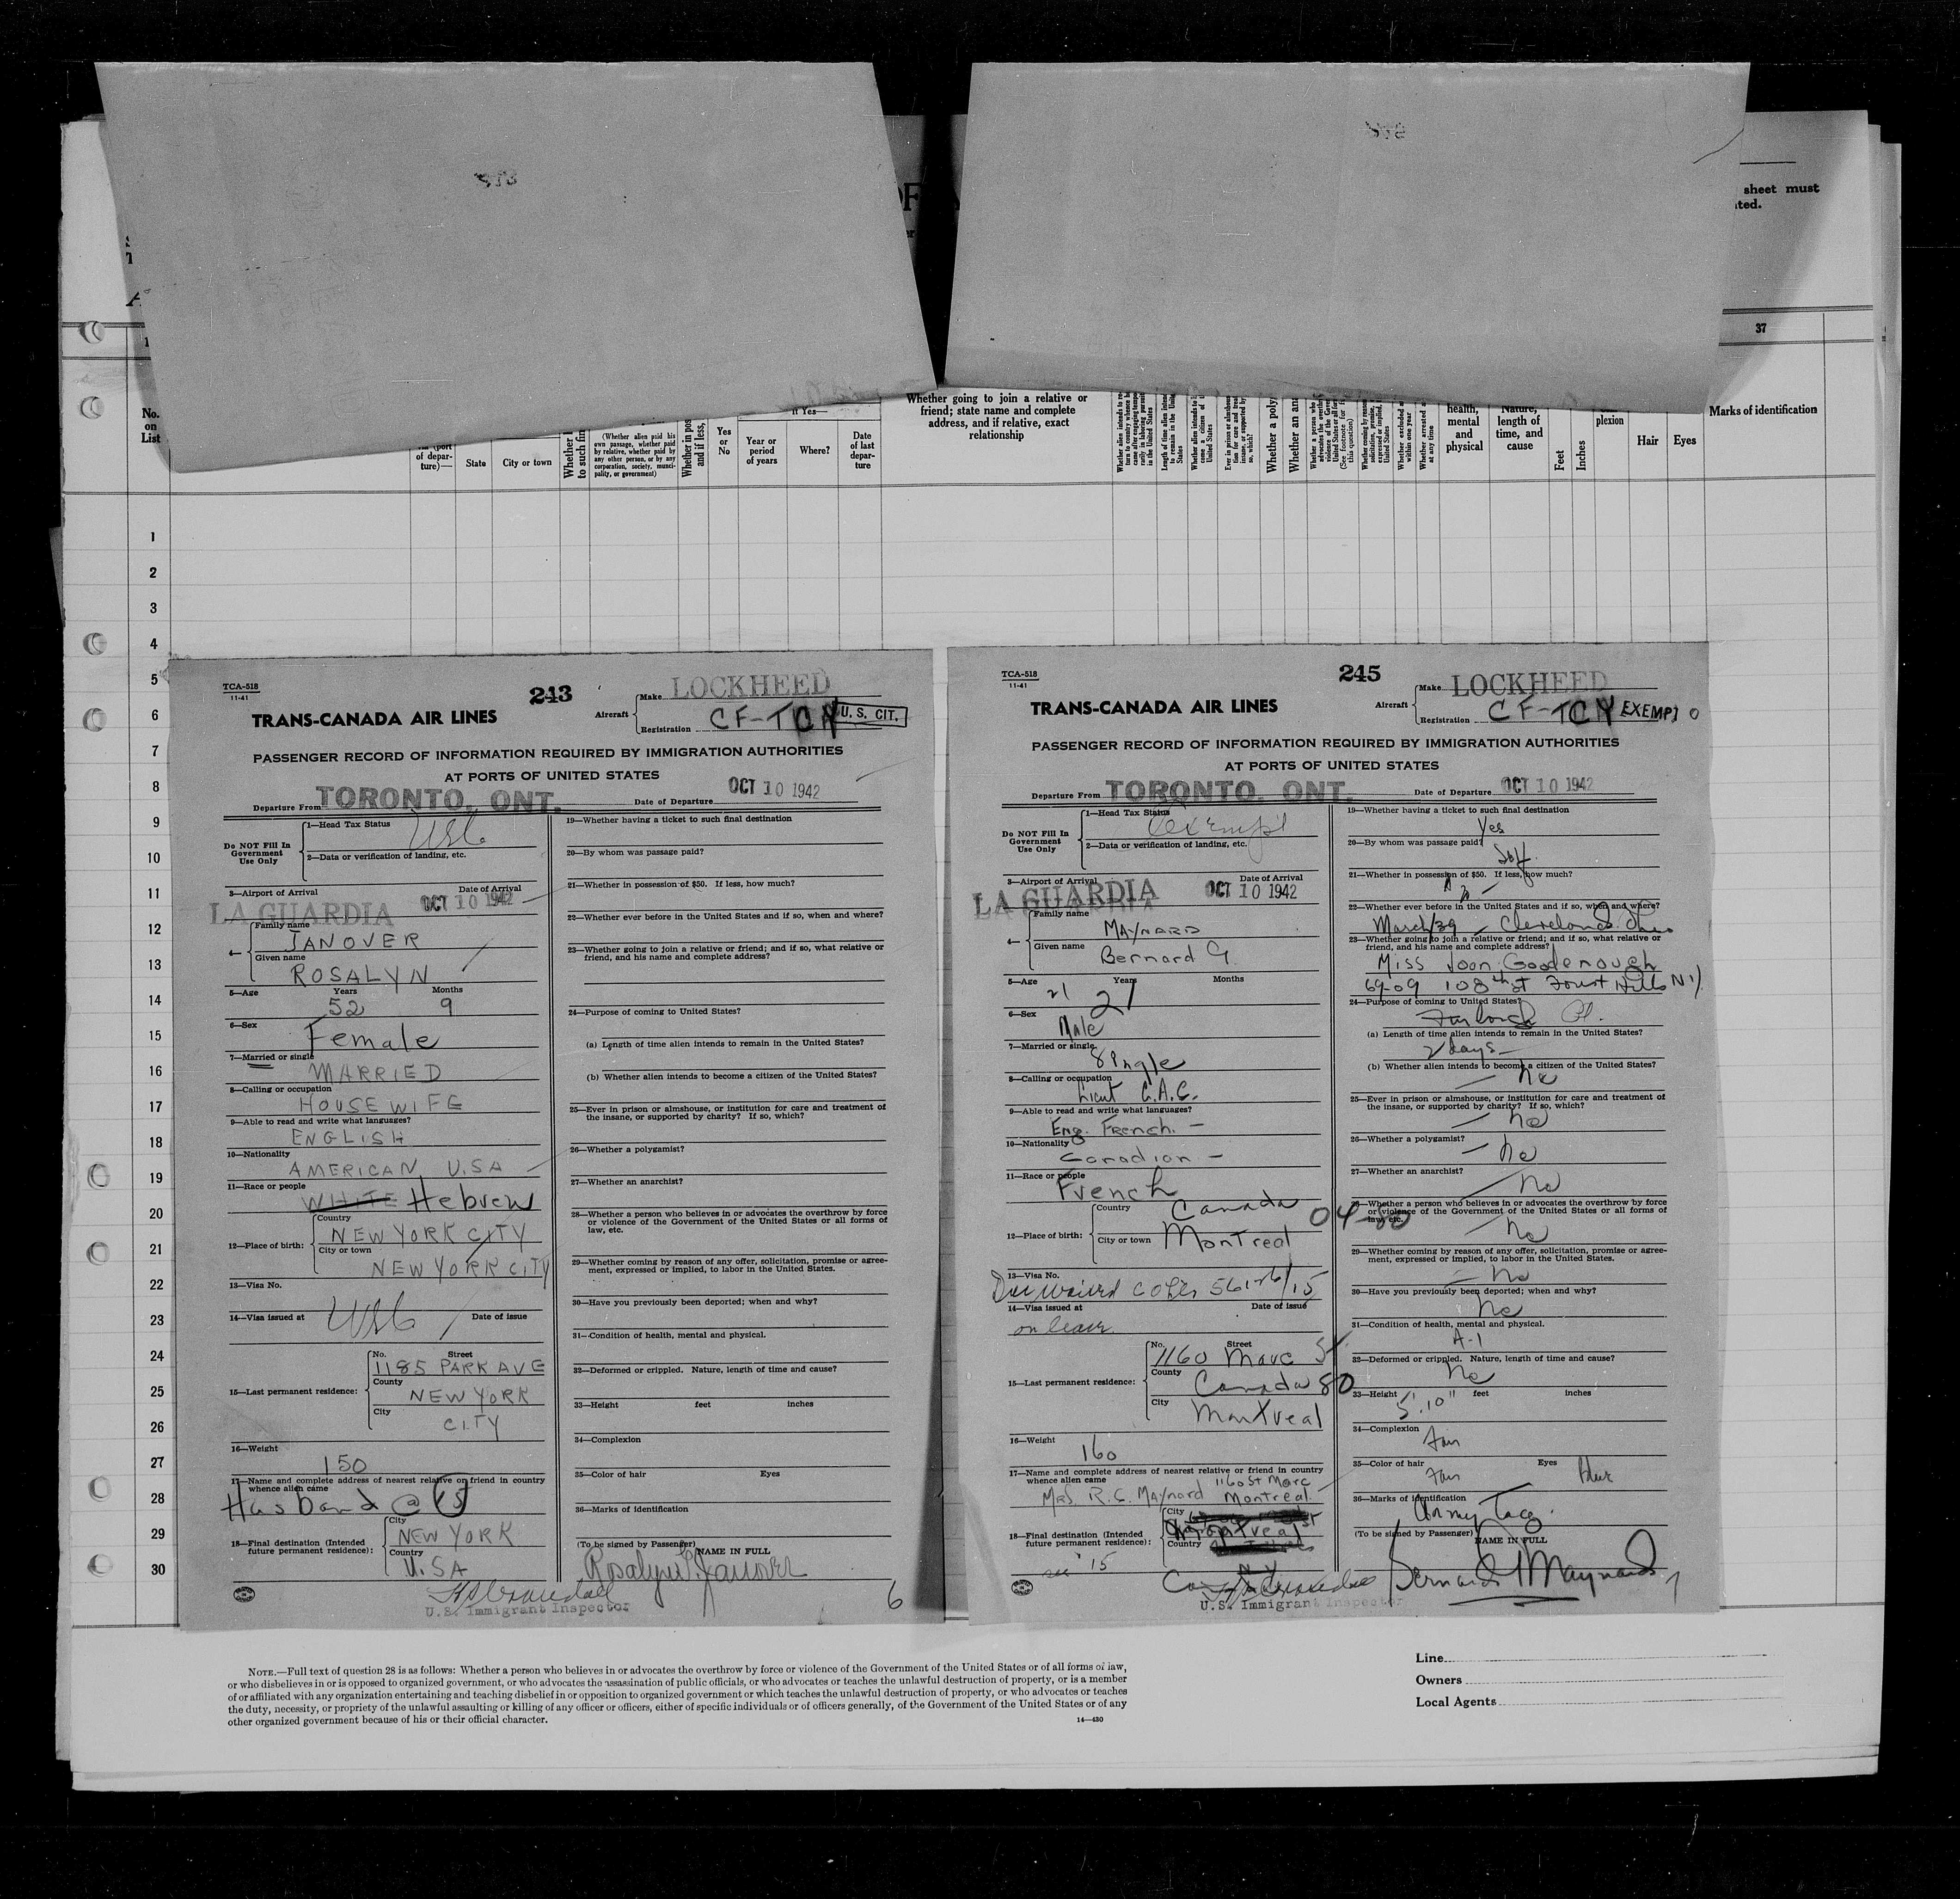 sheet must
ted.
37
No.
on
List
(port
of depar-
ture)—
State
City or town
(Whether alien paid his
own passage, whether paid
by relative, whether paid by
any other person, or by any
corporation, society, munci-
pality, or government)
Yes
or
No
If Yes—
Year or
period
of years
Where?
Date
of last
depar-
ture
Whether going to join a relative or
friend; state name and complete
address, and if relative, exact
relationship
health,
mental
and
physical
Nature,
length of
time, and
cause
Feet
Inches
plexion
Hair
Eyes
Marks of identification
1
2
3
4
5
6
7
8
9
10
11
12
13
14
15
16
17
18
19
20
21
22
23
24
25
26
27
28
29
30
TCA-518
11-41
243
Make LOCKHEED
TRANS-CANADA AIR LINES
Aircraft
Registration CF-TCN
U. S. CIT.
PASSENGER RECORD OF INFORMATION REQUIRED BY IMMIGRATION AUTHORITIES
AT PORTS OF UNITED STATES
Departure From TORONTO, ONT. Date of Departure OCT 10 1942
Do NOT Fill In
Government
Use Only
1—Head Tax Status USC
2—Data or verification of landing, etc.
3—Airport of Arrival Date of Arrival
LA GUARDIA OCT 10 1942
4— Family name
JANOVER
Given name
ROSALYN
5—Age Years Months
52 9
6—Sex
Female
7—Married or single
MARRIED
8—Calling or occupation
HOUSEWIFE
9—Able to read and write what languages?
ENGLISH
10—Nationality
AMERICAN, U.S.A
11—Race or people
WHITE Hebrew
12—Place of birth:
Country
NEW YORK CITY
City or town
NEW YORK CITY
13—Visa No.
14—Visa issued at USC Date of issue
15—Last permanent residence:
No. Street
1185 PARK AVE
County
NEW YORK
City
CITY
16—Weight
150
17—Name and complete address of nearest relative or friend in country
whence alien came
Husband @ 15
18—Final destination (Intended
future permanent residence):
City
NEW YORK
Country
U.S.A
U.S. Immigrant Inspector
19—Whether having a ticket to such final destination
20—By whom was passage paid?
21—Whether in possession of $50. If less, how much?
22—Whether ever before in the United States and if so, when and where?
23—Whether going to join a relative or friend; and if so, what relative or
friend, and his name and complete address?
24—Purpose of coming to United States?
(a) Length of time alien intends to remain in the United States?
(b) Whether alien intends to become a citizen of the United States?
25—Ever in prison or almshouse, or institution for care and treatment of
the insane, or supported by charity? If so, which?
26—Whether a polygamist?
27—Whether an anarchist?
28—Whether a person who believes in or advocates the overthrow by force
or violence of the Government of the United States or all forms of
law, etc.
29—Whether coming by reason of any offer, solicitation, promise or agree-
ment, expressed or implied, to labor in the United States.
30—Have you previously been deported; when and why?
31—Condition of health, mental and physical.
32—Deformed or crippled. Nature, length of time and cause?
33—Height feet inches
34—Complexion
35—Color of hair Eyes
36—Marks of identification
(To be signed by Passenger) NAME IN FULL
Rosalyn Janover
6
TCA-518
11-41
245
Make LOCKHEED
TRANS-CANADA AIR LINES
Aircraft
Registration CF-TCN
EXEMPT
PASSENGER RECORD OF INFORMATION REQUIRED BY IMMIGRATION AUTHORITIES
AT PORTS OF UNITED STATES
Departure From TORONTO, ONT. Date of Departure OCT 10 1942
Do NOT Fill In
Government
Use Only
1—Head Tax Status exempt
2—Data or verification of landing, etc.
3—Airport of Arrival
LA GUARDIA OCT 10 1942
4— Family name
MAYNARD
Given name
Bernard G.
5—Age Years Months
21 21
6—Sex
Male
7—Married or single
Single
8—Calling or occupation
Lieut C.A.C.
9—Able to read and write what languages?
Eng. French. —
10—Nationality
Canadian —
11—Race or people
French
12—Place of birth:
Country
Canada
City or town Montreal
13—Visa No.
14—Visa issued at Date of issue
on leave
15—Last permanent residence:
No. Street
1160 Marc St.
County
Canada 80
City
Montreal
16—Weight
160
17—Name and complete address of nearest relative or friend in country
whence alien came
1160 St Marc
Mrs. R.C. Maynard Montreal
18—Final destination (Intended
future permanent residence):
City
Montreal
Country
15
U.S. Immigrant Inspector
19—Whether having a ticket to such final destination
Yes
20—By whom was passage paid?
Self.
21—Whether in possession of $50. If less, how much?
22—Whether ever before in the United States and if so, when and where?
March/39 — Cleveland Ohio
23—Whether going to join a relative or friend; and if so, what relative or
friend, and his name and complete address?
Miss Joan Goodenough
69-09 108th St Forest Hills NY
24—Purpose of coming to United States?
Furlough
(a) Length of time alien intends to remain in the United States?
2 days —
(b) Whether alien intends to become a citizen of the United States?
— no
25—Ever in prison or almshouse, or institution for care and treatment of
the insane, or supported by charity? If so, which?
— no
26—Whether a polygamist?
— no
27—Whether an anarchist?
— No
28—Whether a person who believes in or advocates the overthrow by force
or violence of the Government of the United States or all forms of
law, etc.
— No
29—Whether coming by reason of any offer, solicitation, promise or agree-
ment, expressed or implied, to labor in the United States.
— No
30—Have you previously been deported; when and why?
No
31—Condition of health, mental and physical.
A-1
32—Deformed or crippled. Nature, length of time and cause?
No
33—Height feet inches
5' 10"
34—Complexion
35—Color of hair Eyes
Blue
36—Marks of identification
Army Tag.
(To be signed by Passenger) NAME IN FULL
Bernard Maynard
7
NOTE.—Full text of question 28 is as follows: Whether a person who believes in or advocates the overthrow by force or violence of the Government of the United States or of all forms of law,
or who disbelieves in or is opposed to organized government, or who advocates the assassination of public officials, or who advocates or teaches the unlawful destruction of property, or is a member
of or affiliated with any organization entertaining and teaching disbelief in or opposition to organized government or which teaches the unlawful destruction of property, or who advocates or teaches
the duty, necessity, or propriety of the unlawful assaulting or killing of any officer or officers, either of specific individuals or of officers generally, of the Government of the United States or of any
other organized government because of his or their official character.
14—430
Line
Owners
Local Agents